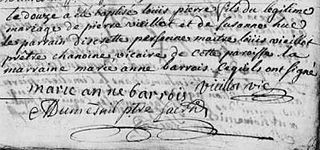 le douze a été baptisé louis pierre fils du legitime
mariage de pierre vieillot et de susanne hue
les parrain discrette personne maitre louis vieillot
prêtre chanoine vicaire de cette paroisse la
marraine marie anne barrois lesquels ont signé
marie anne barrois vieillot vic
Dumesnil ptre